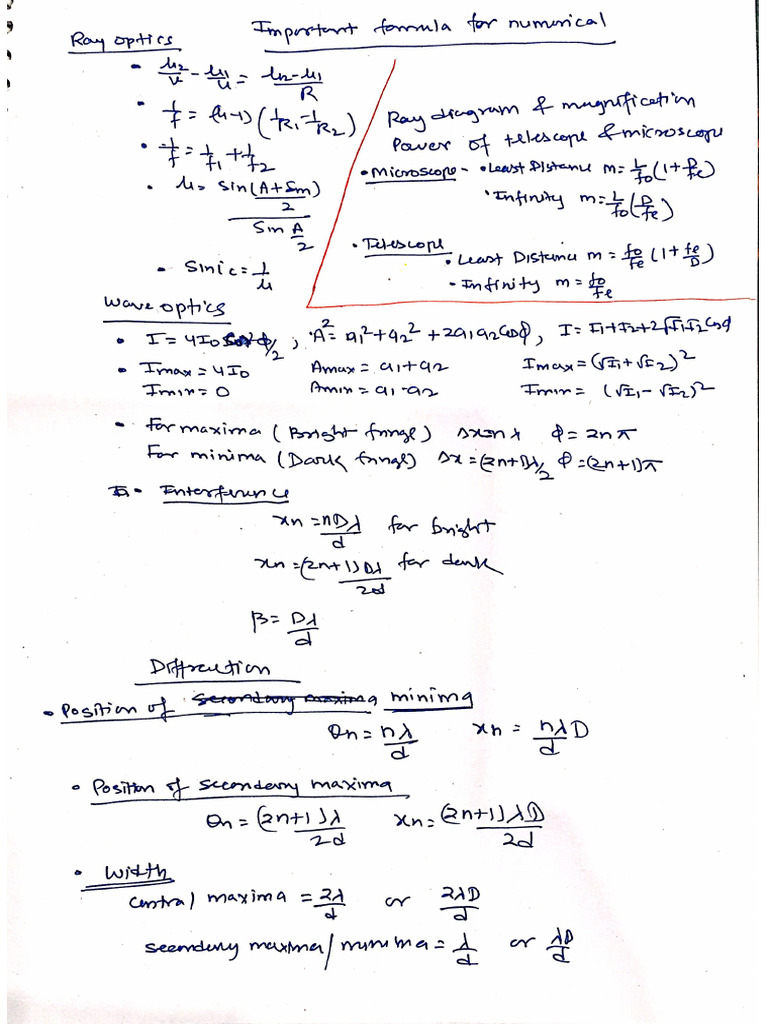 Important formula for numerical
Ray optics
• μ2/v - μ1/u = μ2-μ1/R
• 1/f = (μ-1) (1/R1 - 1/R2)
• 1/f = 1/f1 + 1/f2
• μ = Sin(A+Sm)/2 / Sin A/2
• Sin ic = 1/μ
Ray diagram & magnification
Power of telescope & microscope
• Microscope - • Least Distance m = L/fo (1+D/fe)
• Infinity m = L/fo (D/fe)
• Telescope
• Least Distance m = fo/fe (1+fe/D)
- Infinity m = fo/fe
Wave optics
• I = 4I0 cos²φ/2 ; A² = a1²+a2²+2a1a2cosφ, I = I1+I2+2√I1√I2 cosφ
• Imax = 4I0 Amax = a1+a2 Imax = (√I1+√I2)²
Imin = 0 Amin = a1-a2 Imin = (√I1-√I2)²
• For maxima (Bright fringe) Δx=nλ φ = 2nπ
For minima (Dark fringe) Δx = (2n+1)λ/2 φ = (2n+1)π
• Enterference
xn = nDλ/d for bright
xn = (2n+1)Dλ/2d for dark
β = Dλ/d
Diffraction
• Position of secondary maxima minima
θn = nλ/d xn = nλD/d
• Position of secondary maxima
θn = (2n+1)λ/2d xn = (2n+1)λD/2d
• Width
Central maxima = 2λ/d or 2λD/d
secondary maxima/minima = λ/d or λD/d